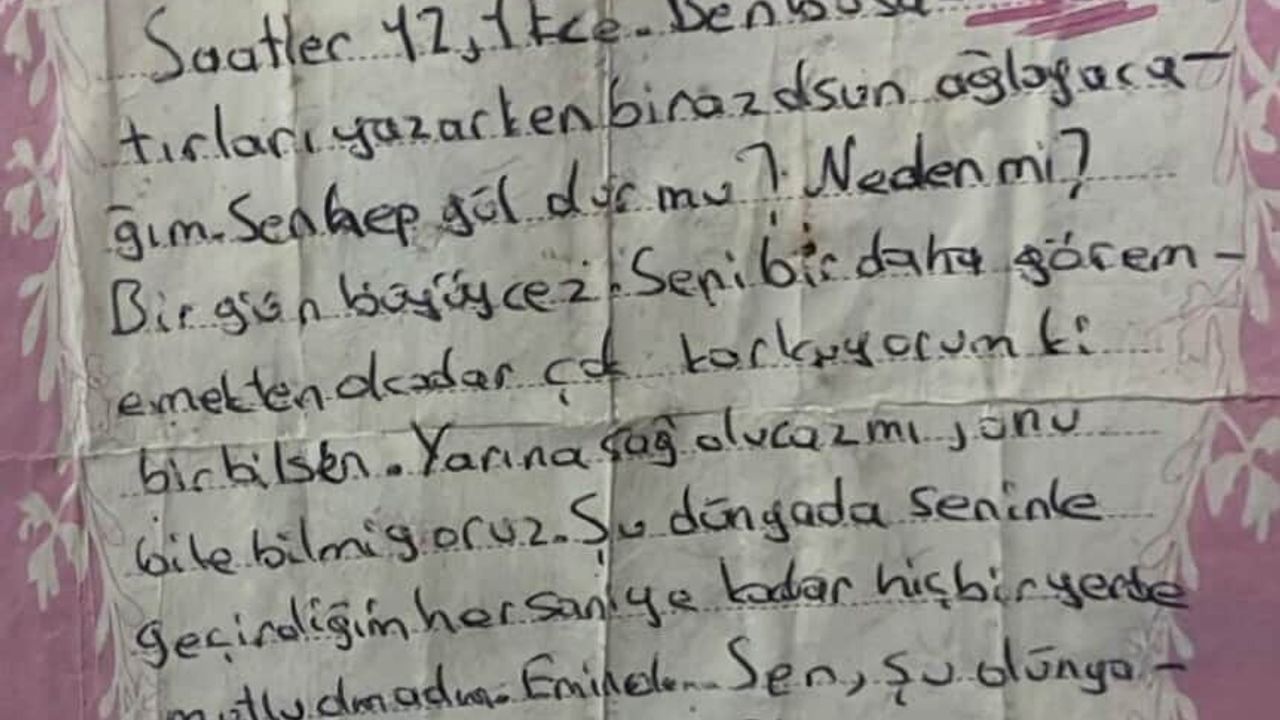 Saatler 12, 1 kce. Ben bu sa-
tırları yazarken biraz olsun ağlayaca-
ğım. Sen hep gül dur mu? Neden mi?
Bir gün büyüycez. Seni bir daha görem-
emekten okadar çok korkuyorum ki
bir bilsen. Yarına sağ olucazmı, onu
bile bilmiyoruz. Şu dünyada seninle
geçirdiğim her saniye kadar hiçbir yerde
mutlu olmadım. Emin ol. Sen, şu dünya-